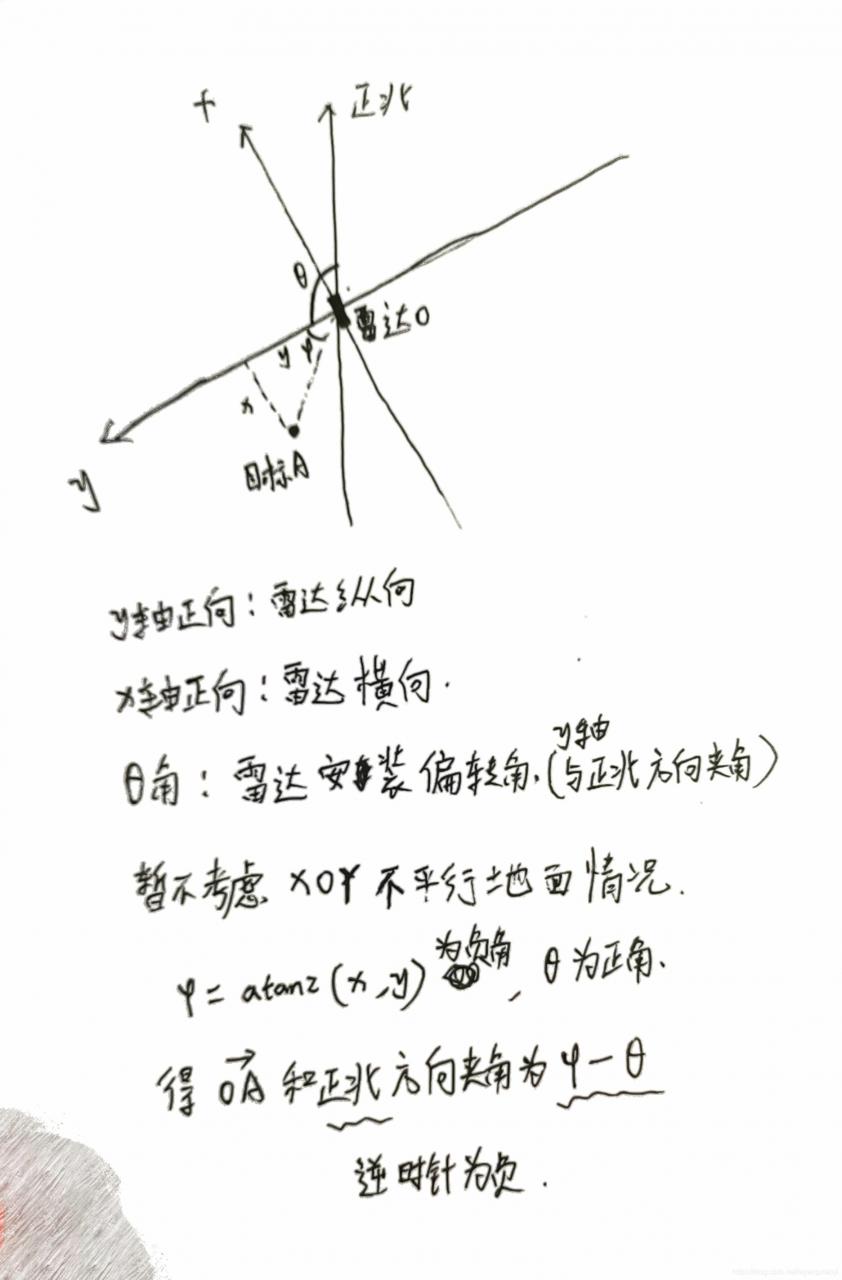 x
正北
θ
雷达O
y φ
x
目标A
y
y轴正向：雷达纵向
x轴正向：雷达横向.
θ角：雷达安装偏转角.(y轴与正北方向夹角)
暂不考虑 XOY 不平行地面情况.
φ = atan2(x,y) 为负角, θ为正角.
得 OA 和正北方向夹角为 φ-θ
逆时针为负.